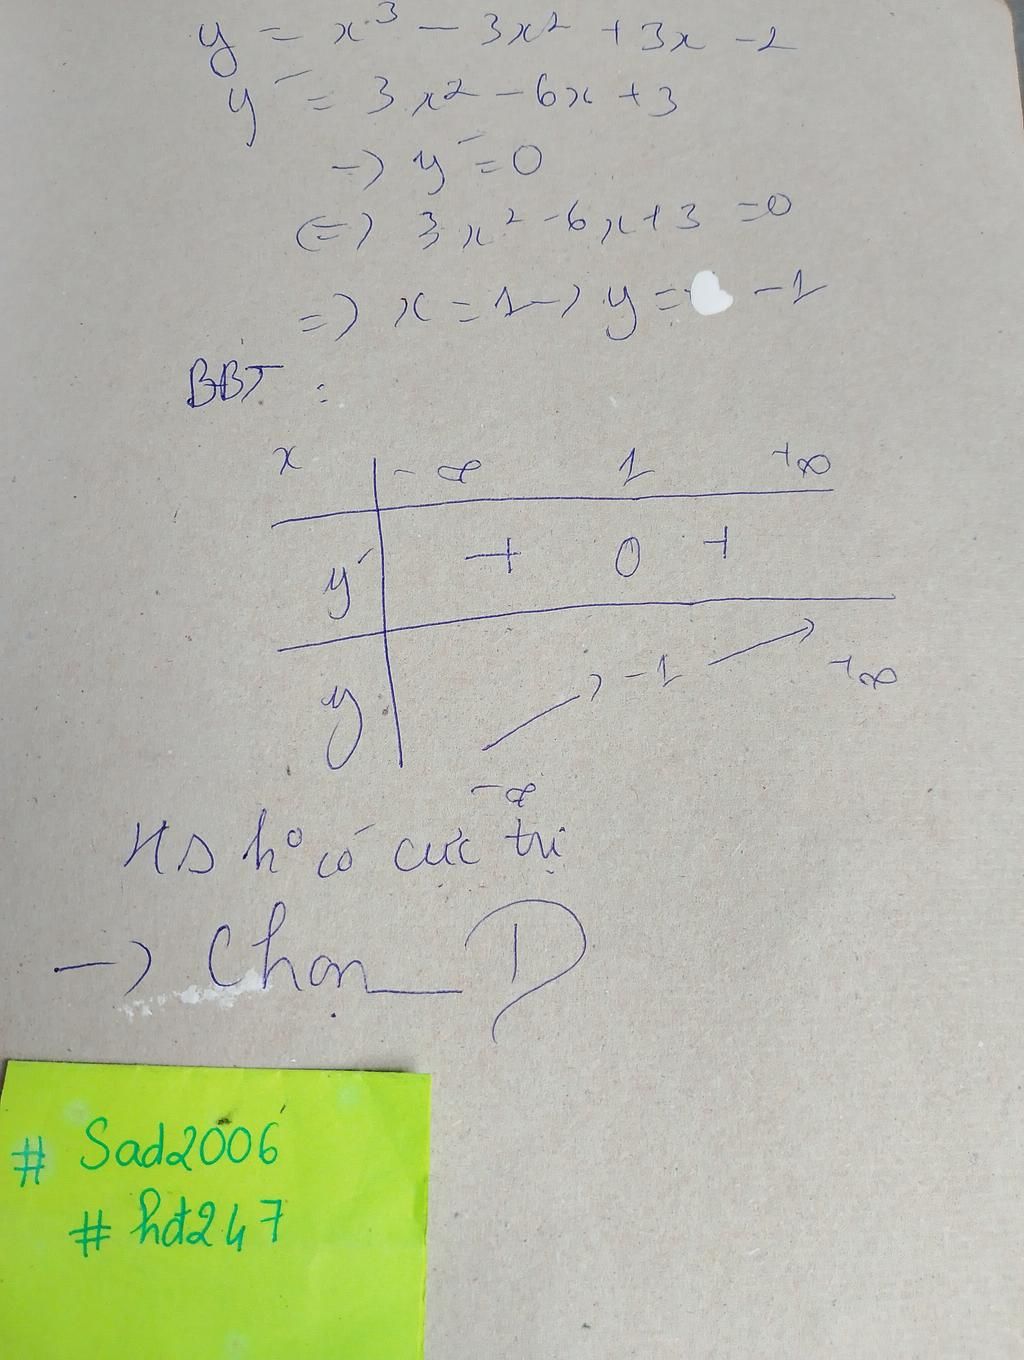 y = x³ - 3x² + 3x - 2
y' = 3x² - 6x + 3
→ y' = 0
(=) 3x² - 6x + 3 = 0
=) x = 1 → y = -1
BBT :
x -∞ 1 +∞
y' + 0 +
y -∞ → -1 → +∞
HS k° có cực trị
→ Chọn D
# Sad2006
# hđ247